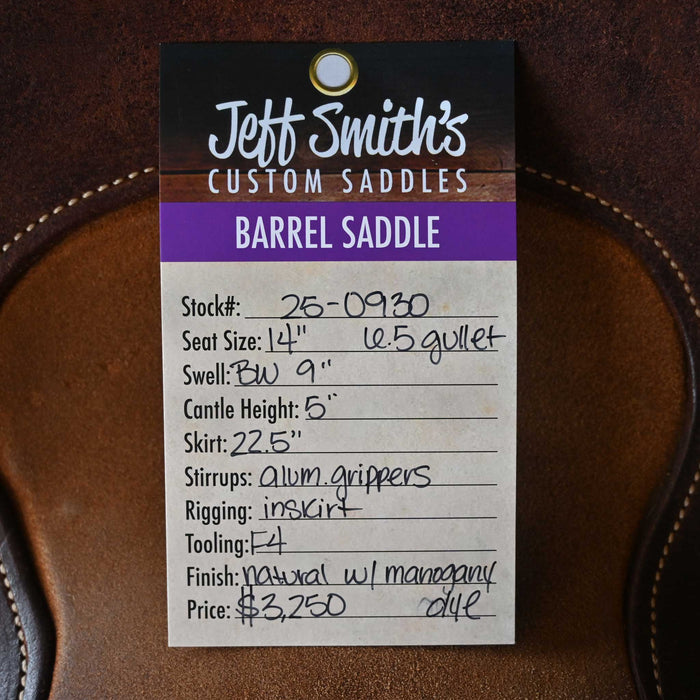 Jeff Smith's
CUSTOM SADDLES
BARREL SADDLE
Stock#: 25-0930
Seat Size: 14" 6.5 gullet
Swell: BW 9"
Cantle Height: 5"
Skirt: 22.5"
Stirrups: alum. grippers
Rigging: inskirt
Tooling: F4
Finish: natural w/ manogany
Price: $3,250 dye